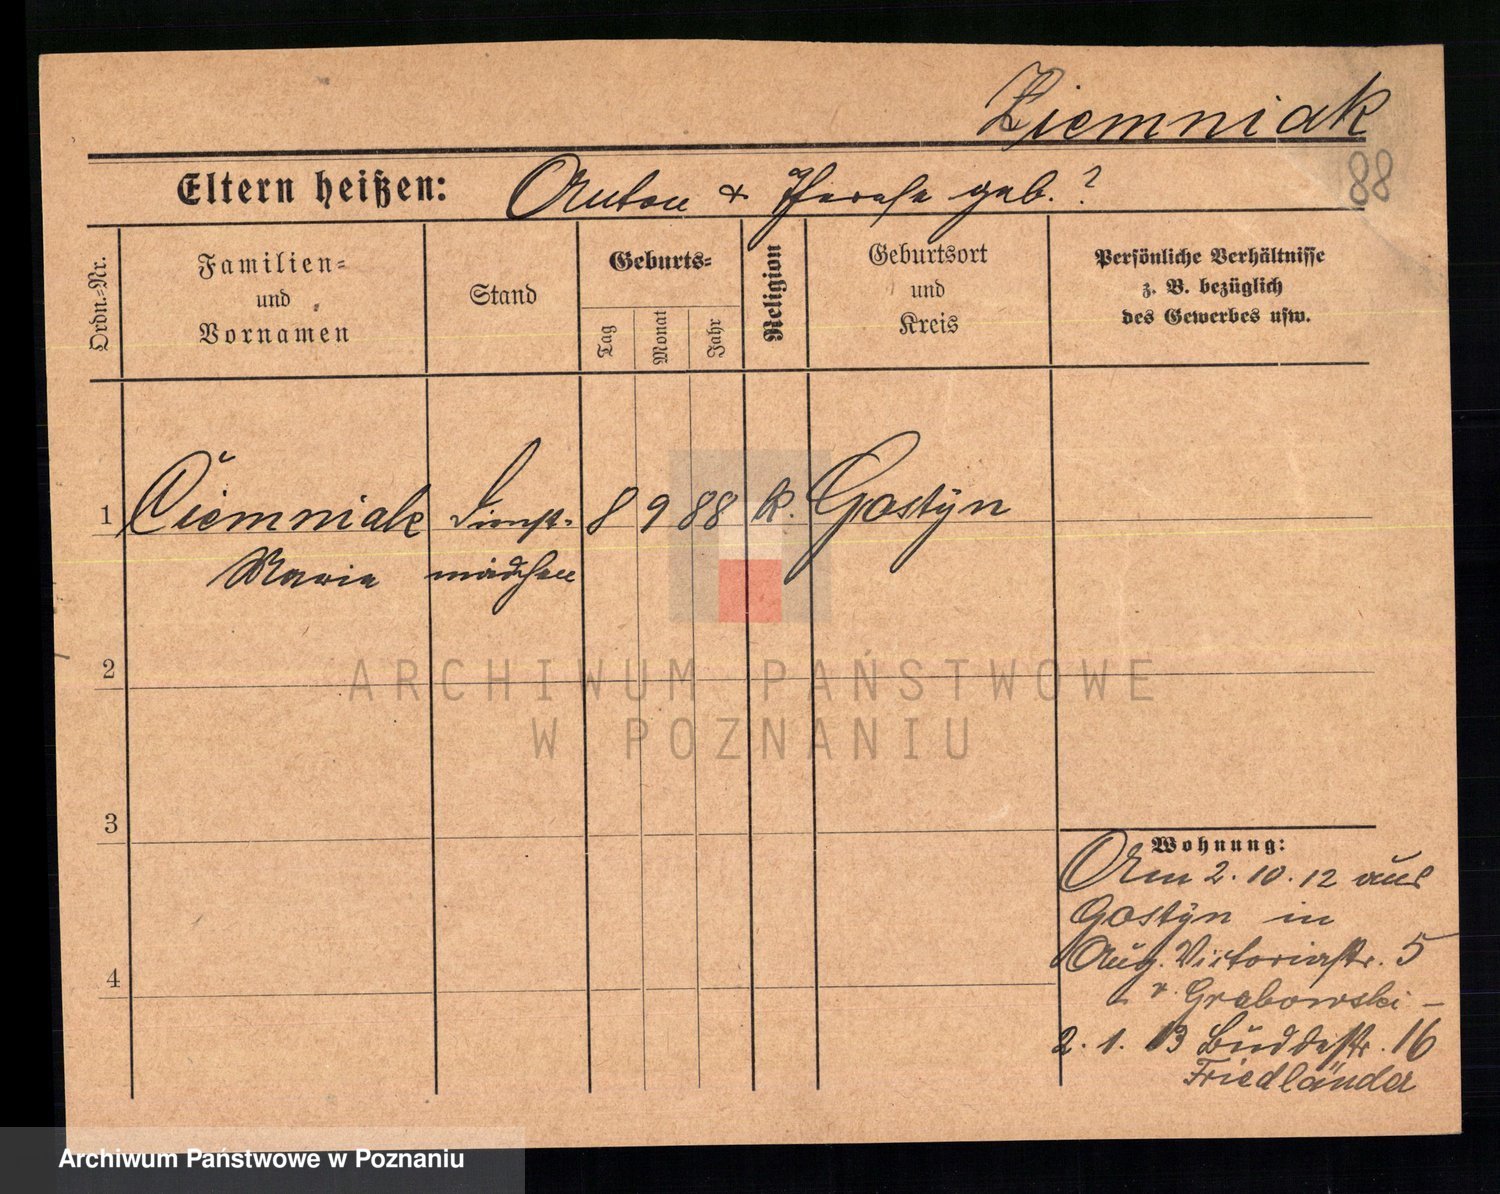 Ziemniak
88
Eltern heißen: Anton & Therese geb. ?
Ordn.-Nr.
Familien-
und
Vornamen
Stand
Geburts-
Tag
Monat
Jahr
Religion
Geburtsort
und
Kreis
Persönliche Verhältnisse
z. B. bezüglich
des Gewerbes usw.
1 Ciemniak Dienst- 8 9 88 k. Gostyn
Maria mädchen
2
ARCHIWUM PAŃSTWOWE
W POZNANIU
3
4
Wohnung:
Am 2. 10. 12 aus
Gostyn in
Aug. Victoriastr. 5
v. Grabowski -
2. 1. 13 Buddestr. 16
Friedländer
Archiwum Państwowe w Poznaniu